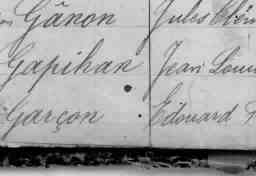 Gânon Jules
Gapihan Jean Louis
Garçon Edouard